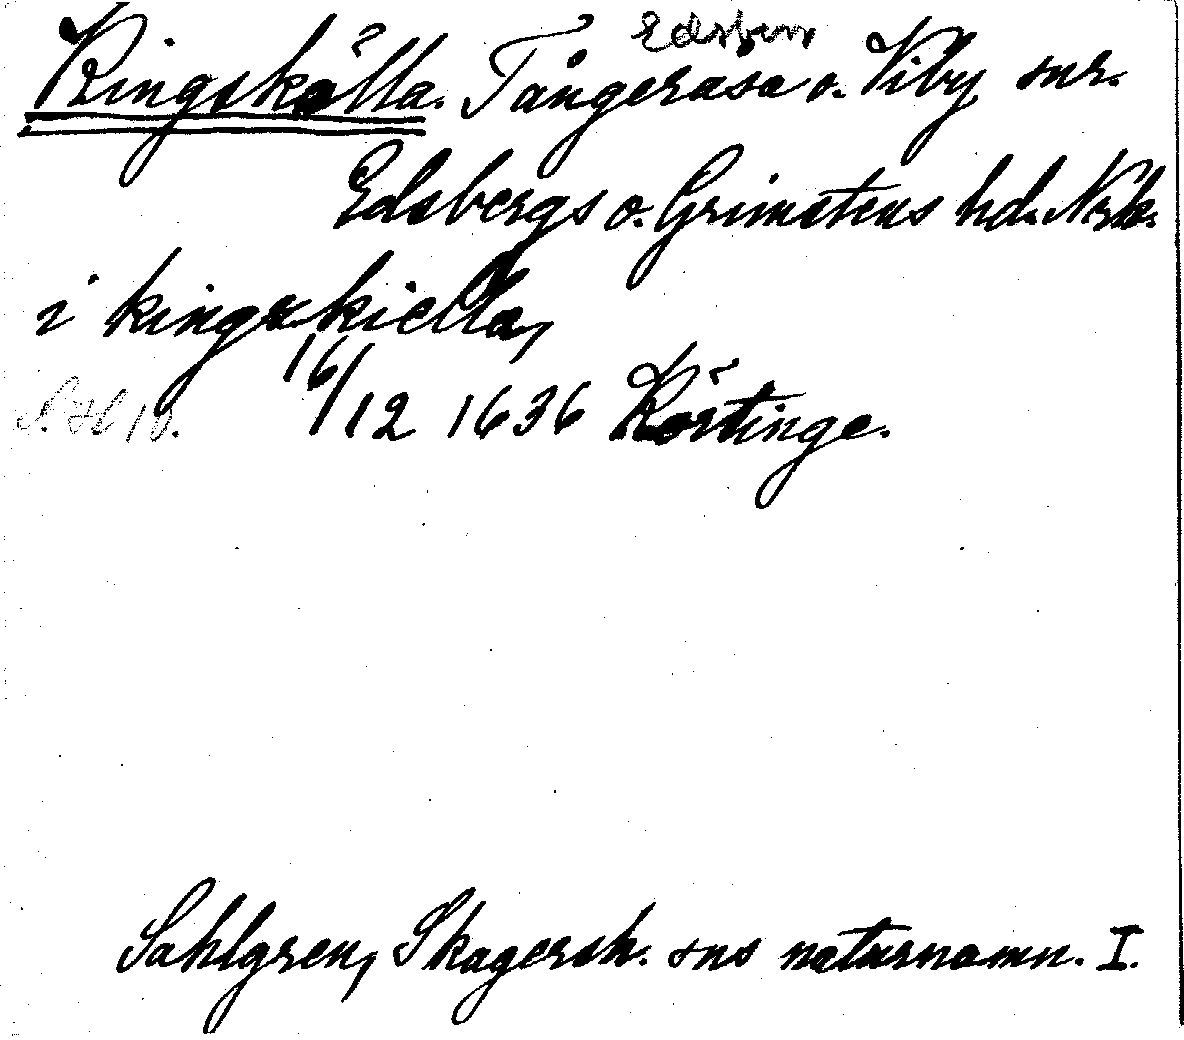 Edsberg
Kingskälla. Tångeråsa o. Viby snr.
Edsbergs o. Grimstens hd. Nrk.
i kingxkiella,
16/12 1636 Körtinge.
Sahlgren, Skagersh. sns naturnamn. I.